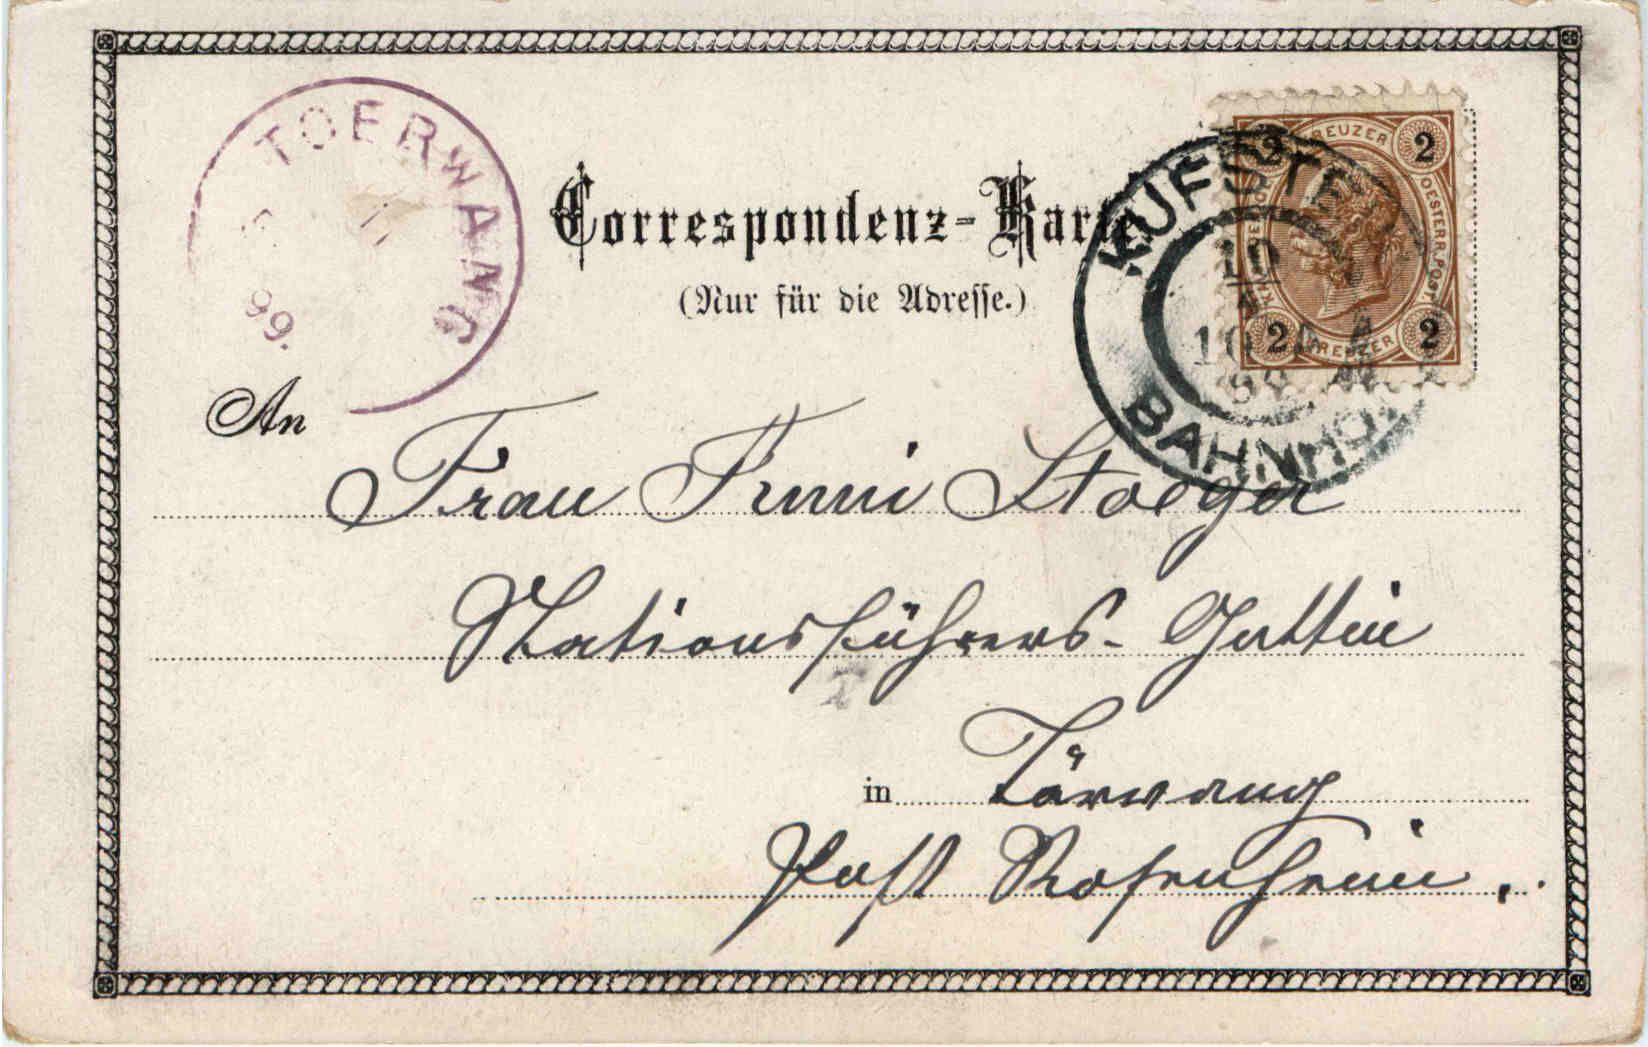 TOERWANG
99.
Correspondenz-Karte
(Nur für die Adresse.)
KREUZER
2 2
OESTERR. POST.
2 KREUZER 2
KUFSTEIN
10
BAHNHOF
An
Frau Fanni Stoeger
Stationsführers-Gattin
in Törwang
Post Rosenheim.